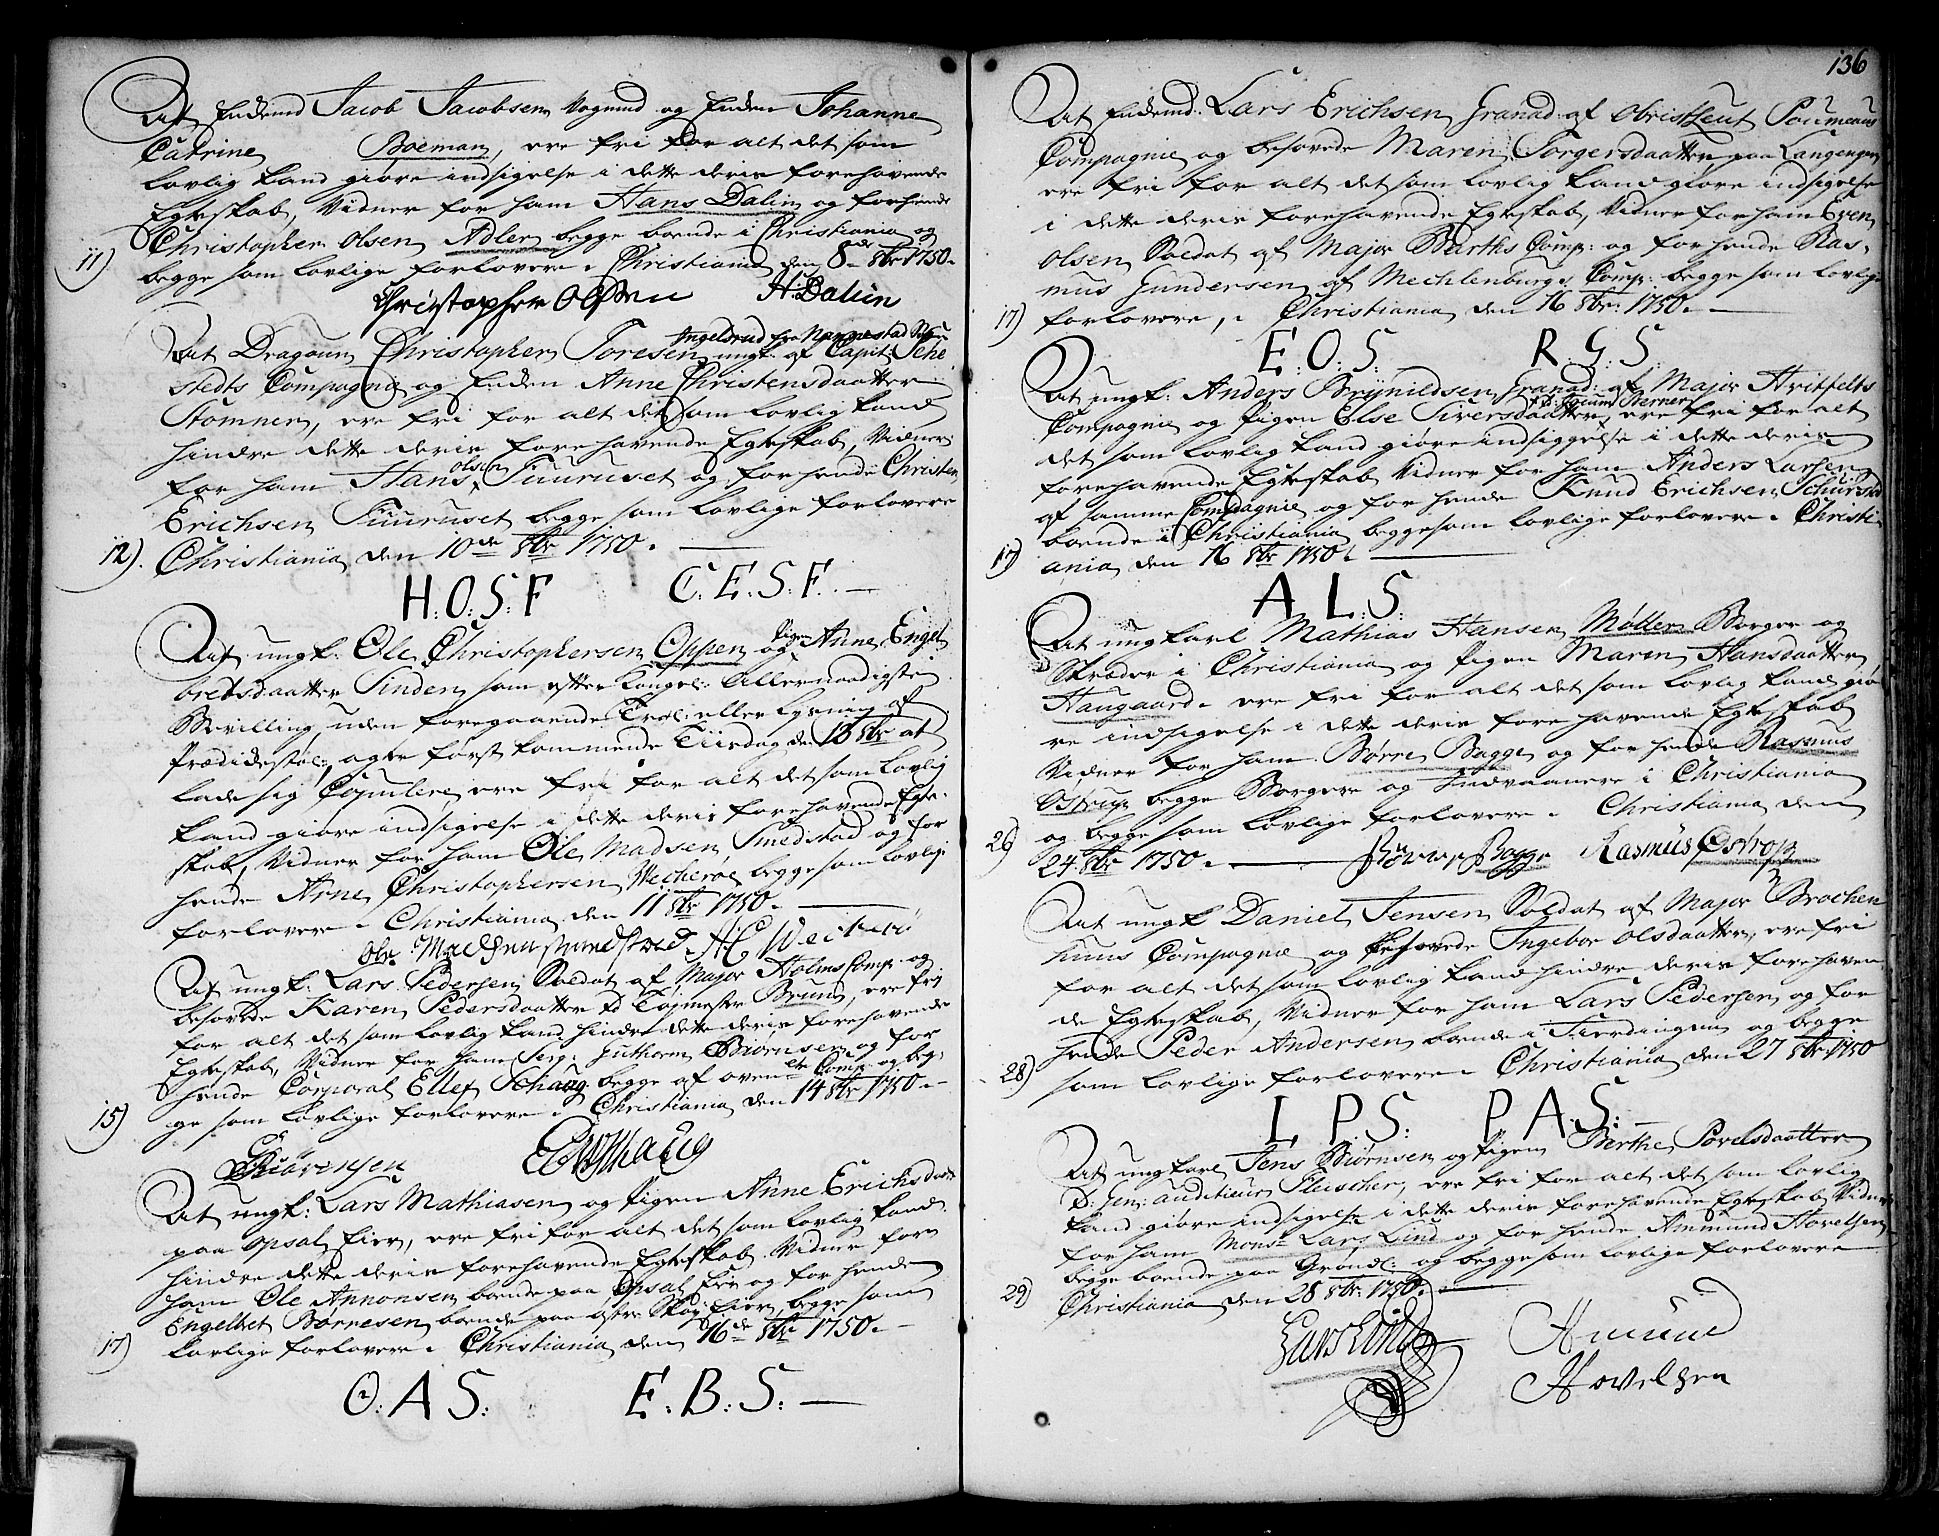 At Enckemd Jacob Jacobsen Vognmd og Encken Johanne
Catrine Boeman, ere fri for alt det som
lovlig kand giøre indsigelse i dette deris forehavende
Egteskab, Vidner for ham Hans Dalin og for hende
Christopher Olsen Adler begge boende i Christiania og
11) begge som lovlige forlovere. Christiania den 8de 8br 1750.
Christopher Olsen H. Dalin
Ingelsrud fra Nannestad
At Dragoun Christopher Toresen ungk. af Capit: Sehe
stedts Compagnie og Encken Anne Christensdaatter
Stomner, ere fri for alt det som lovlig kand
hindre dette deris forehavende Egteskab, Vidner
for ham Hans olsen Fuuruset og for hende Christen
Erichsen Fuuruset begge som lovlige forlovere
12). Christiania den 10de 8br 1750.
H:O:S:F C:E:S:F.
At ungk: Ole Christophersen Oppen og Pigen Anne Engel
bretsdaatter Linden som efter Kongel: Allernaadigste
Bevilling, uden foregaaende Trol: eller Lysning af
Prædidestol:, agter først kommende Tiirsdag den 13 8br at
lade sig Copulere, ere fri for alt det som lovlig
kand giøre indsigelse i dette deris forehavende Egte-
skab, Vidner for ham Ole Madsen Smedstad og for
hende Arne Christophersen Vecherøe begge som lovlige
forlovere. Christiania den 11 8br 1750.
Ole Madsen Smedstad AC Weckerö
At ungk: Lars Pedersen Soldat af Major Holms Comp: og
besovede Karen Pedersdaatter td Togmester Bruns, ere fri
for alt det som lovlig kand hindre dette deris forehavende
Egteskab, Vidner for ham Serg: Guthorm Biørnsen og for
hende Corporal Ellef Schaug begge af ovenmte Comp: og beg-
15) ge som lovlige forlovere. Christiania den 14 8br 1750.
GBiörensen ESchaug
At ungk: Lars Mathiasen og Pigen Anne Erichsdaatt
paa Opsal Eier, ere fri for alt det som lovlig kand
hindre dette deris forehavende Egteskab. Vidner for
ham Ole Annonsen boende paa Opsal Eier og for hende
Engelbet Børresen boende paa østre Skøy: Eier, begge som
17) lovlige forlovere. Christiania den 16de 8br 1750.
O:A:S: E.B.S.
136
At Enckemd: Lars Erichsen Granad: af ObristLeut Poumeaus
Compagnie og besovede Maren Torgersdaatter paa Langengen
ere fri for alt det som lovlig kand giøre indsigelse
i dette deris forehavende Egteskab, Vidner for ham Even
Olsen Soldat af Major Barths Comp: og for hende Ras-
mus Gundersen af Mechlenburgs Comp: begge som lovlige
17) forlovere, Christiania den 16 8br: 1750.
E.O.S. R.G.S.
At ungk: Anders Brÿnildsen Granad: af Major Hvitfelts
Compagnie og Pigen Else Siversdaatter, ere fri for alt
det som lovlig kand giøre indsiggelse i dette deris
forehavende Egteskab Vidner for ham Anders Larsen
af samme Compagnie og for hende Knud Erichsen Schursta
boende i Christiania begge som lovlige forlovere. Christi-
17) ania den 16 8br 1750.
A.L:S:
At ungkarl Mathias Hansen Møller Borger og
Skræder i Christiania og Pigen Maren Hansdaatter
Haugaard. ere fri for alt det som lovlig kand giø-
re indsigelse i dette deris forehavende Egteskab
Vidner for ham Børre Bagge og for hende Rasmus
Østrup begge Borgere og Indvaanere i Christiania
og begge som lovlige forlovere. Christiania den
26) 24 8br 1750. Börre Bagge Rasmus Östrop
At ungk Daniel Jensen Soldat af Major Brochen
huus Compagnie og besovede Ingebor Olsdaatter, ere fri
for alt det som lovlig kand hindre deris forehaven-
de Egteskab, Vidner for ham Lars Pedersen og for
hende Peder Andersen boende i Fierdingen og begge
28) som lovlige forlovere. Christiania den 27 8br 1750
L P S: P A S:
At ungkarl Jens Biørnsen og Pigen Berthe Povelsdaatter
td: Gen: auditieur Fleischer, ere fri for alt det som lovlig
kand giøre indsigelse i dette deris forehavende Egteskab Vidner
for ham Monsr Lars Lind og for hende Ammund Hovelsen
begge boende paa Grønl: og begge som lovlige forlovere
29) Christiania den 28 8br: 1750.
Lars Lind Amund
Hovelsen